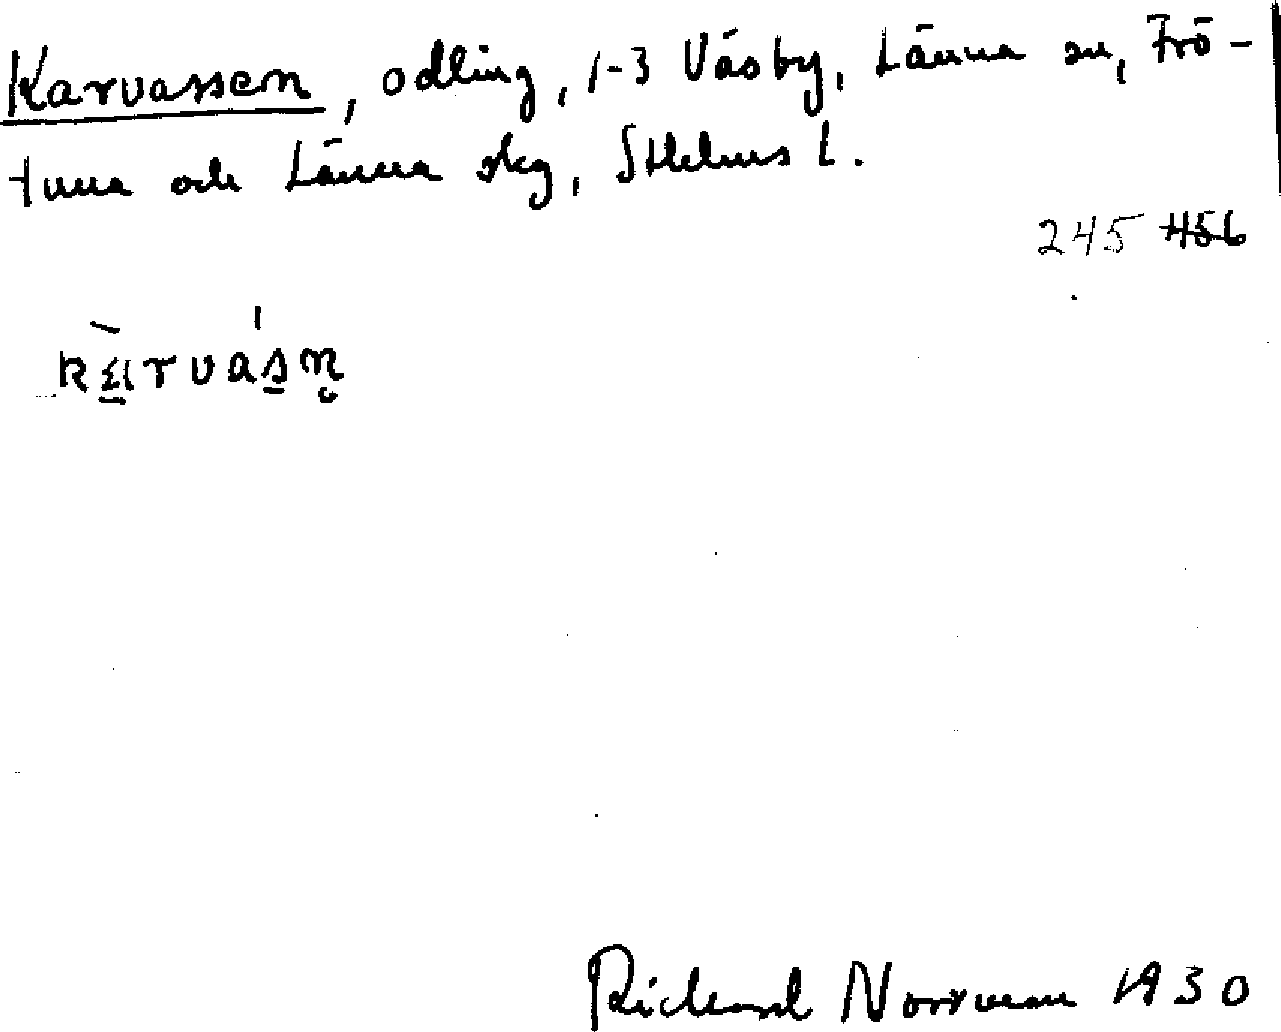 Karvassen, odling, 1-3 Väsby, Länna sn, Frö-
tuna och Länna skg, Sthlms L.
245 456
kɑrvasn̥
Richard Norrman 1930